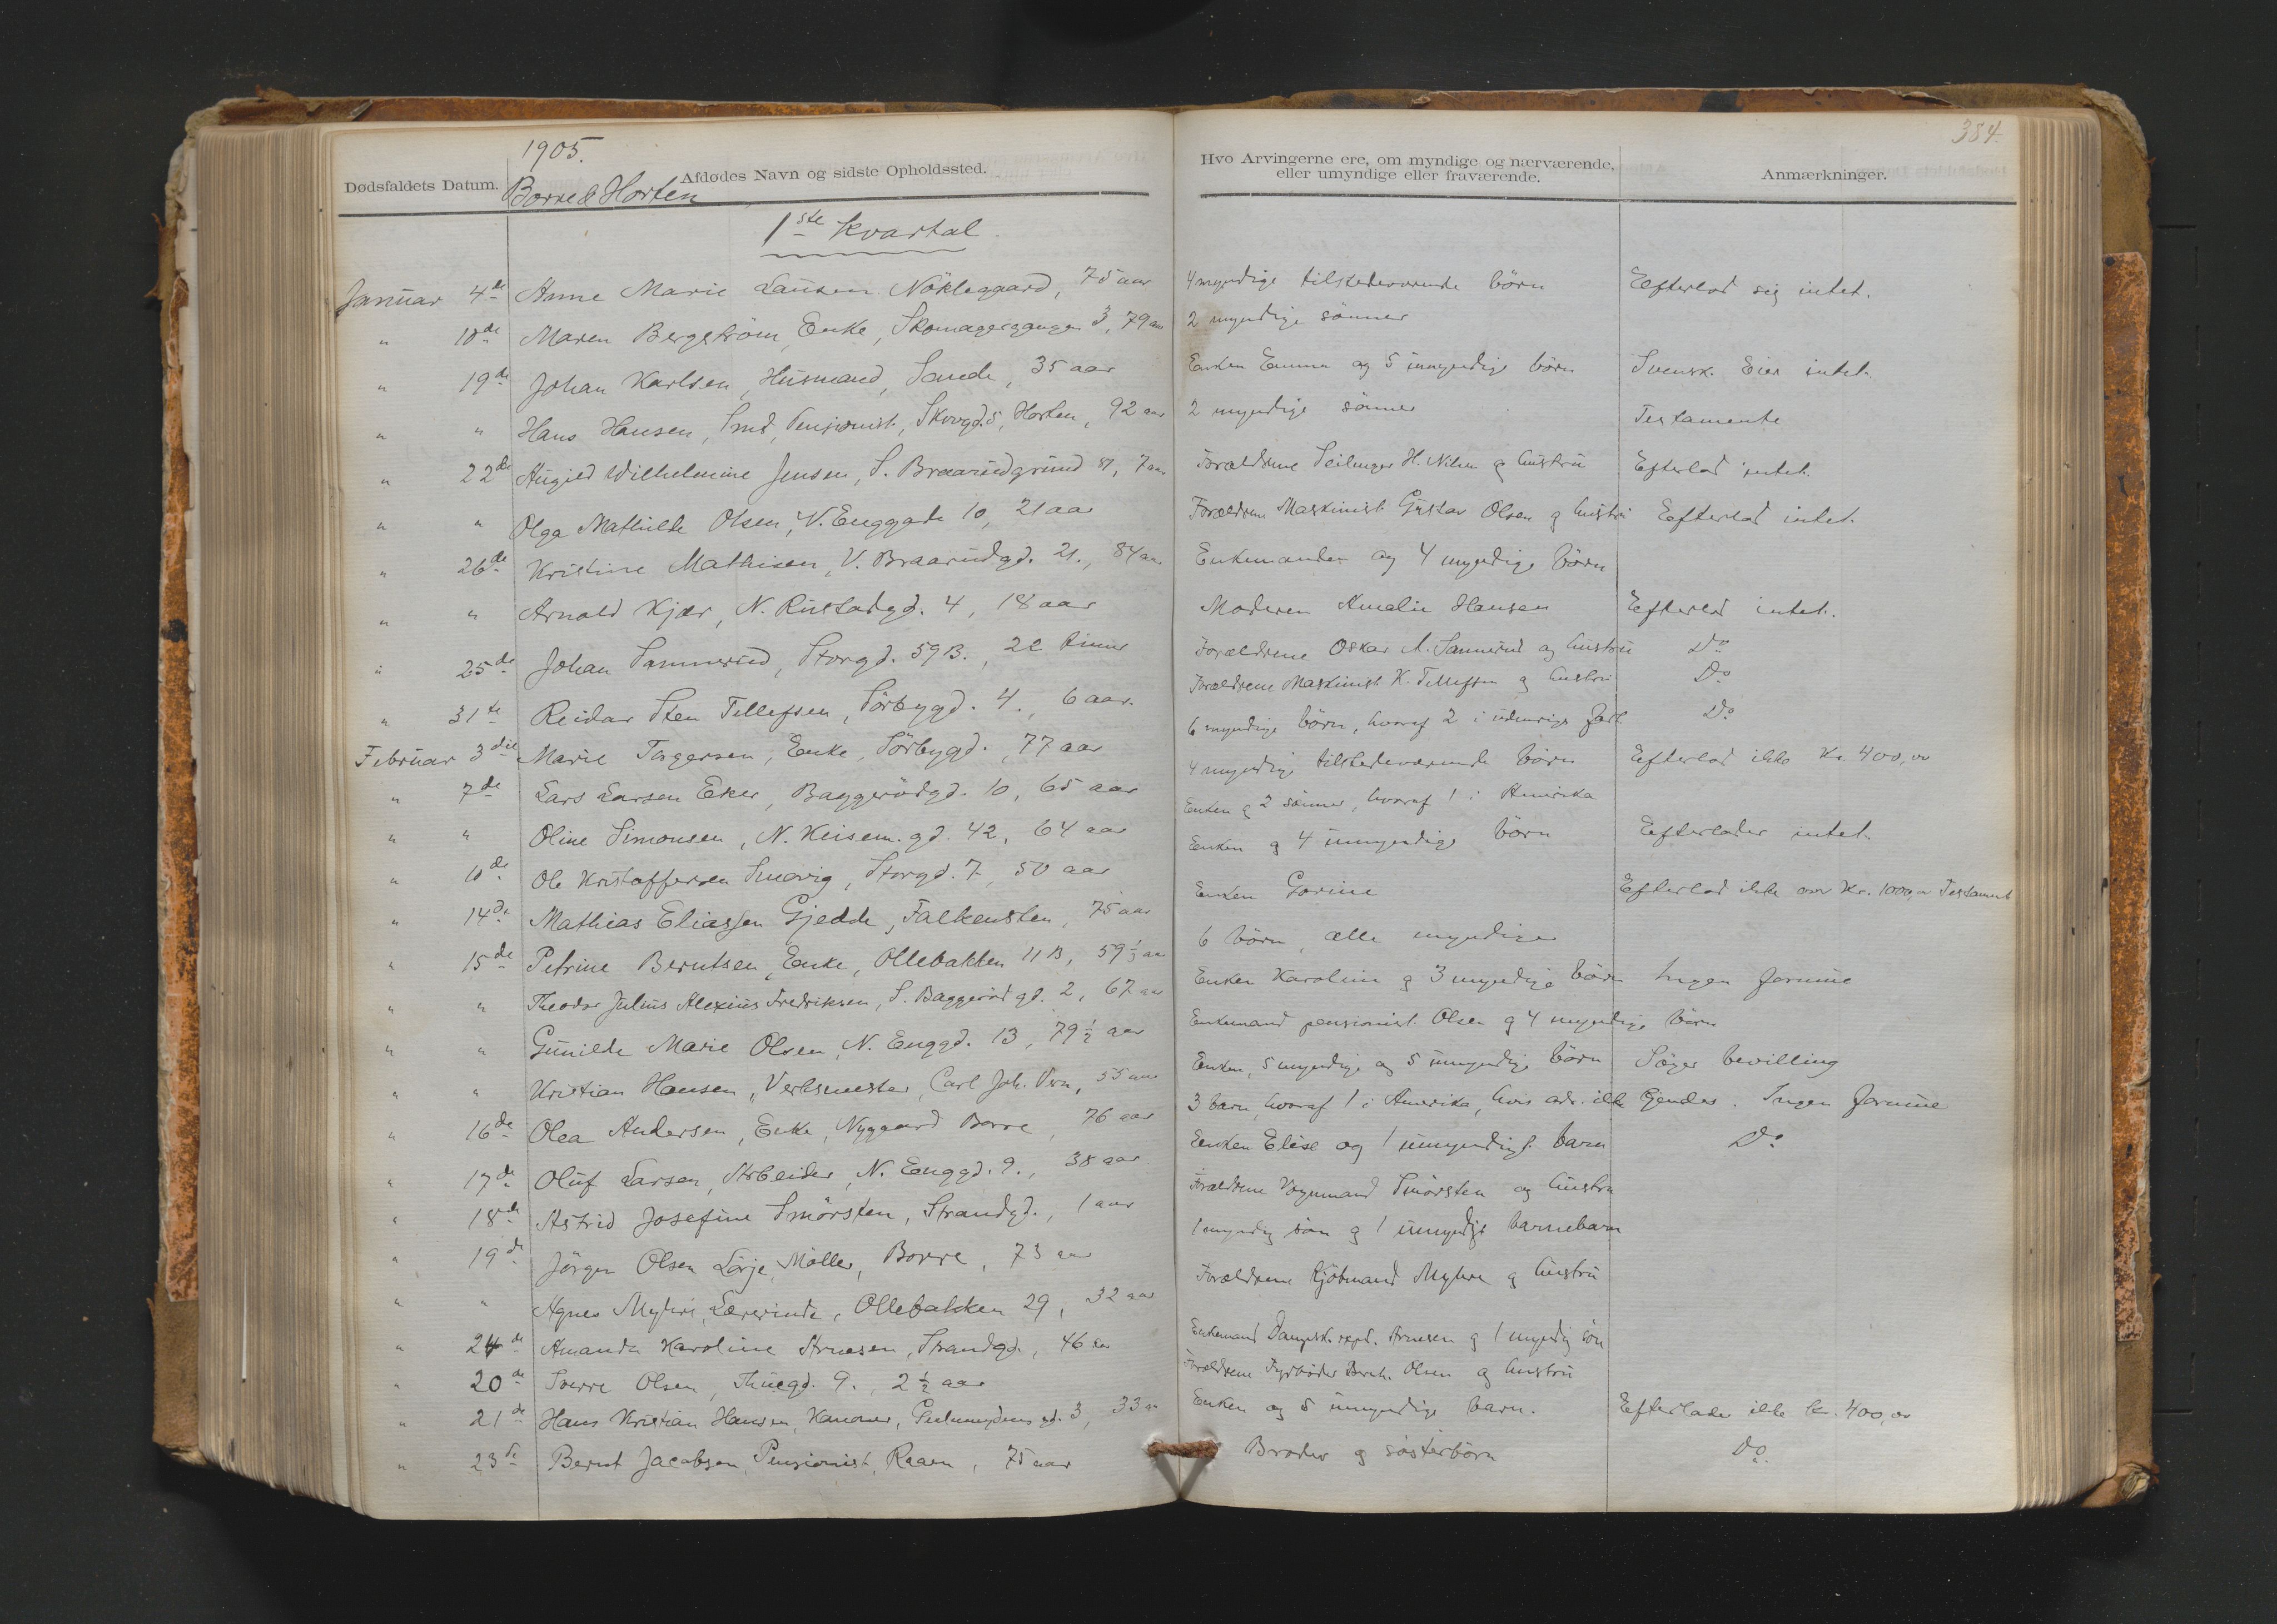 384.
1905.
Dødsfaldets Datum. Afdødes Navn og sidste Opholdssted. Hvo Arvingerne ere, om myndige og nærværende, eller umyndige eller fraværende. Anmærkninger.
Borre & Horten
1ste Kvartal
Januar 4de Anne Marie Laursen Nökleggaard, 75 aar 4 myndige tilstedeværende börn Efterlod sig intet.
" 10de Maren Bergström, Enke, Skomagergangen 3, 79 aar 2 myndige sönner
" 19de Johan Karlsen, Husmand, Sande, 35 aar Enken Emma og 5 umyndige börn Svensk. Eier intet.
" " Hans Hansen, Smed, Pensionist, Skovgd. 5, Horten, 92 aar 2 myndige sönner Testamente
" 22de Wilhelmine Jensen, S. Braarudgrund 7 aar Forældrene H. Nilsen og hustru Efterlod intet.
" " Olga Mathilde Olsen, V. Enggade 10, 21 aar Forældrene Maskinist Gustav Olsen og hustru Efterlod intet.
" 26de Kristine Mathisen, V. Braarudgd. 21., 84 aar Enkemanden og 4 myndige börn
" " Arnold Kjær, N. Rustadgd. 4, 18 aar Moderen Amalie Hansen Efterlod intet.
" 25de Johan Sannerud, Storgd. 59 B., 22 timer Forældrene Oskar A. Sannerud og hustru Do
" 31te Reidar Sten Tellefsen, Sörbygd. 4., 6 aar. Forældrene Maskinist K. Tellefsen og hustru Do
Februar 3die Marie Torgersen, Enke, Sörbygd., 77 aar 6 myndige börn, hvoraf 2 i udenrigs fart Do
" 7de Lars Larsen Eker, Baggerödgd. 10, 65 aar 4 myndige tilstedeværende börn Efterlod ikke Kr. 400,00
" " Oline Simonsen, N. Keisem. gd. 42, 64 aar Enken og 2 sönner, hvoraf 1 i Amerika
" 10de Ole Kristoffersen Smörvig, Storgd. 7, 50 aar Enken og 4 umyndige börn Efterlader intet.
" 14de Mathias Eliassen Gjedde, Falkensten, 75 aar Enken Gorine Efterlod ikke over Kr. 1000,00 Testament
" 15de Petrine Berntsen, Enke, Ollebakken 11 B, 59 aar 6 börn, alle myndige
" " Theodor Julius Alexius Fredriksen, S. Baggeröd gd. 2, 67 aar Enken Karoline og 3 myndige börn Ingen formue
" " Gunilde Marie Olsen, N. Enggd. 13, 79 1/2 aar Enkemand pensionist Olsen og 4 myndige börn
" " Kristian Hansen, Verksmester, Carl Joh. Vern, 55 aar Enken, 5 myndige og 5 umyndige börn Söger bevilling
" 16de Olea Andersen, Enke, Nygaard Borre, 76 aar 3 barn, hvoraf 1 i Amerika, hvis adr. ikke kjendes. Ingen formue
" 17de Oluf Larsen, Arbeider, N. Enggd. 9., 38 aar Enken Elise og 1 umyndigt barn Do
" 18de Astrid Josefine Smörsten, Strandgd., 1 aar Forældrene Vognmand Smörsten og hustru
" 19de Jörgen Olsen Lörje, Möller, Borre, 73 aar 1 myndig sön og 1 umyndigt barnebarn
" " Agnes Myhre, Lærerinde, Ollebakken 29, 32 aar Forældrene Kjöbmand Myhre og hustru
" 24de Amanda Karoline Arnesen, Strandgd., 46 aar Enkemand Dampsk. exp. Arnesen og 1 myndig sön
" 20de Sverre Olsen, Thuegd. 9., 2 1/2 aar Forældrene Fyrböder Bernh. Olsen og hustru
" 21de Hans Kristian Hansen, gd. 3, 33 aar Enken og 5 umyndige barn. Efterlader ikke kr. 400,00
" 23de Bernt Jacobsen, Pensionist, Raaen, 75 aar Broder og sösterbörn Do.